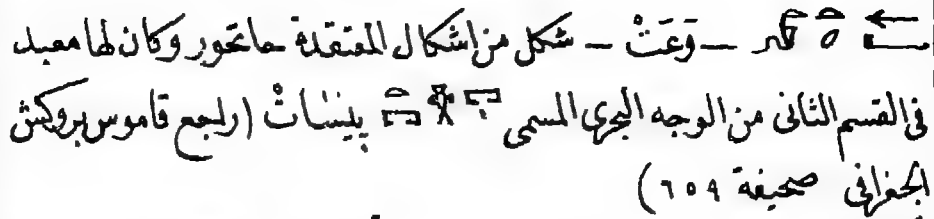 – وَعَتْ – شكل من اشكال المعتقدة حاتحور وكان لها معبد
فى القسم الثانى من الوجه البحرى المسمى پِنِسَاتْ (راجع قاموس بروكش
الجغرافى صحيفة ٦٥٩)